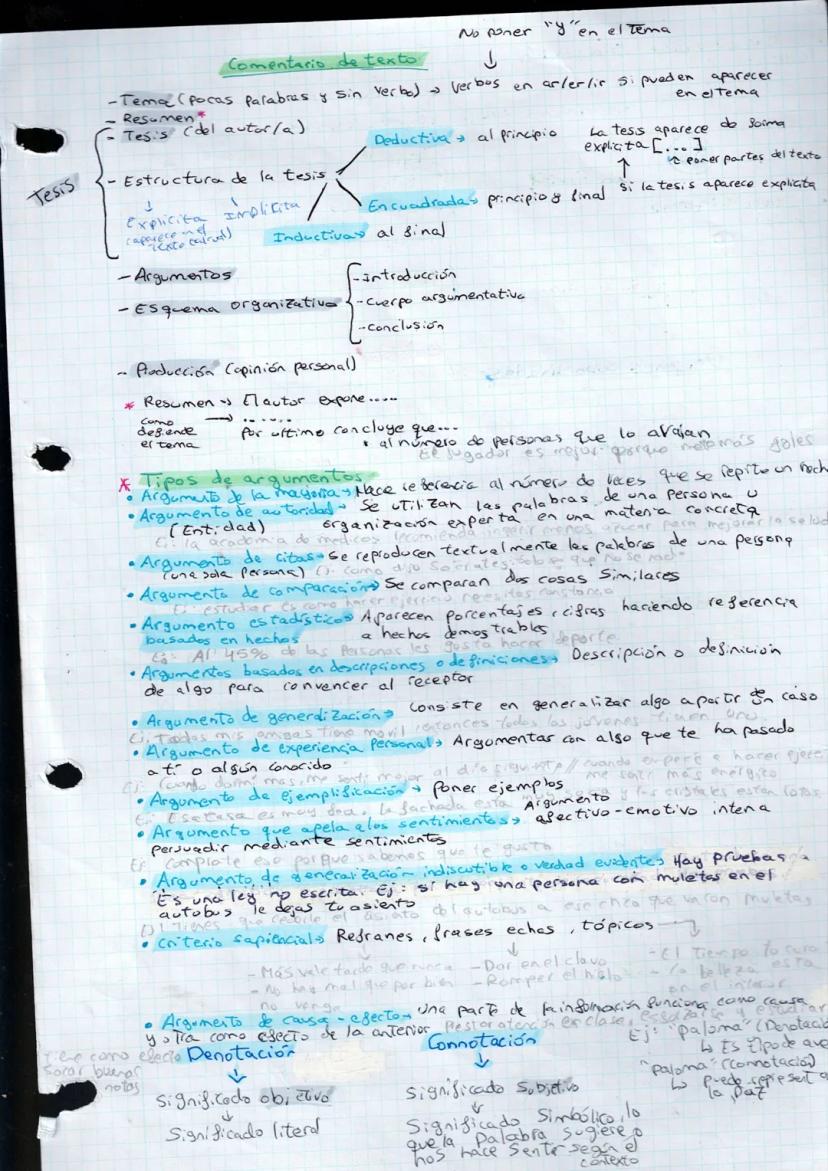 No poner "y" en el Tema
↓
Comentario de texto
- Tema (pocas palabras y sin verbo) → Verbos en ar/er/ir si pueden aparecer
en el Tema
- Resumen *
- Tesis (del autor/a)
Tesis
- Estructura de la tesis
Explicita Implicita
(aparece en el texto
Deductiva → al principio
Encuadrada → principio y final
Inductiva → al final
La tesis aparece de forma
explicita [...]
↑ poner partes del texto
Si la tesis aparece explicita
- Argumentos
- Esquema organizativo
- Introducción
- Cuerpo argumentativo
- Conclusión
- Producción (opinión personal)
* Resumen → El autor expone.....
como defiende el tema → ......
Por ultimo concluye que...
• al número de personas que lo avajan
El jugador es mejor porque mete más goles
* Tipos de argumentos
• Argumento de la mayoria → Hace referencia al número de veces que se repite un hech
• Argumento de autoridad → Se utilizan las palabras de una persona u
(Entidad) organización experta en una materia concreta
Ej: la academia de medicos recomienda ingerir menos azucar para mejorar la salud
• Argumento de citas → Se reproducen textualmente las palabras de una persona
(una sola persona) Ej: como dijo Socrates: solo se que no se nada
• Argumento de comparación → Se comparan dos cosas similares
Ej: estudiar es como hacer ejercicio necesitas constancia
• Argumento estadístico → Aparecen porcentajes, cifras haciendo referencia
basados en hechos a hechos demostrables
Ej: Al 45% de las personas les gusta hacer deporte
• Argumentos basados en descripciones o definiciones → Descripción o definición
de algo para convencer al receptor
• Argumento de generalización → consiste en generalizar algo a partir de un caso
Ej: Todas mis amigas tiene movil, entonces todos los jóvenes tienen uno
• Argumento de experiencia personal → Argumentar con algo que te ha pasado
a ti o algún conocido
Ej: Cuando dormi mas, me senti mejor al dia siguiente // cuando empecé a hacer ejerci
me senti más energico
• Argumento de ejemplificación → poner ejemplos
Ej: Esa casa es muy fea, la fachada esta y los cristales estan rotos
• Argumento que apela a los sentimientos → Argumento
afectivo-emotivo intena
persuadir mediante sentimientos
Ej: Comprate eso porque sabemos que te gusta
• Argumento de generalización indiscutible o verdad evidente → Hay pruebas
Es una ley no escrita. Ej: si hay una persona con muletas en el
autobus le dejas tu asiento
Ej: Tienes que cederle el asiento del autobus a ese chico que va con muletas
• Criterio sapiencial → Refranes, frases echas, tópicos
- Más vale tarde que nunca
- No hay mal que por bien
no venga
- Dar en el clavo
- Romper el hielo
- El Tiempo lo cura
- la belleza esta
en el interior
• Argumento de causa-efecto → Una parte de la información funciona como causa
y otra como efecto de la anterior Prestar atención en clase, esforzarse y estudiar
tiene como efecto
sacar buenas
notas
Denotación
↓
Significado objetivo
↓
Significado literal
Connotación
↓
Significado Subjetivo
↓
Significado Simbólico, lo
que la palabra sugiere o
nos hace sentir según el
contexto
Ej: "paloma" (Denotació
↳ Es tipo de ave
"paloma" (connotación)
↳ puede represent a
la Paz